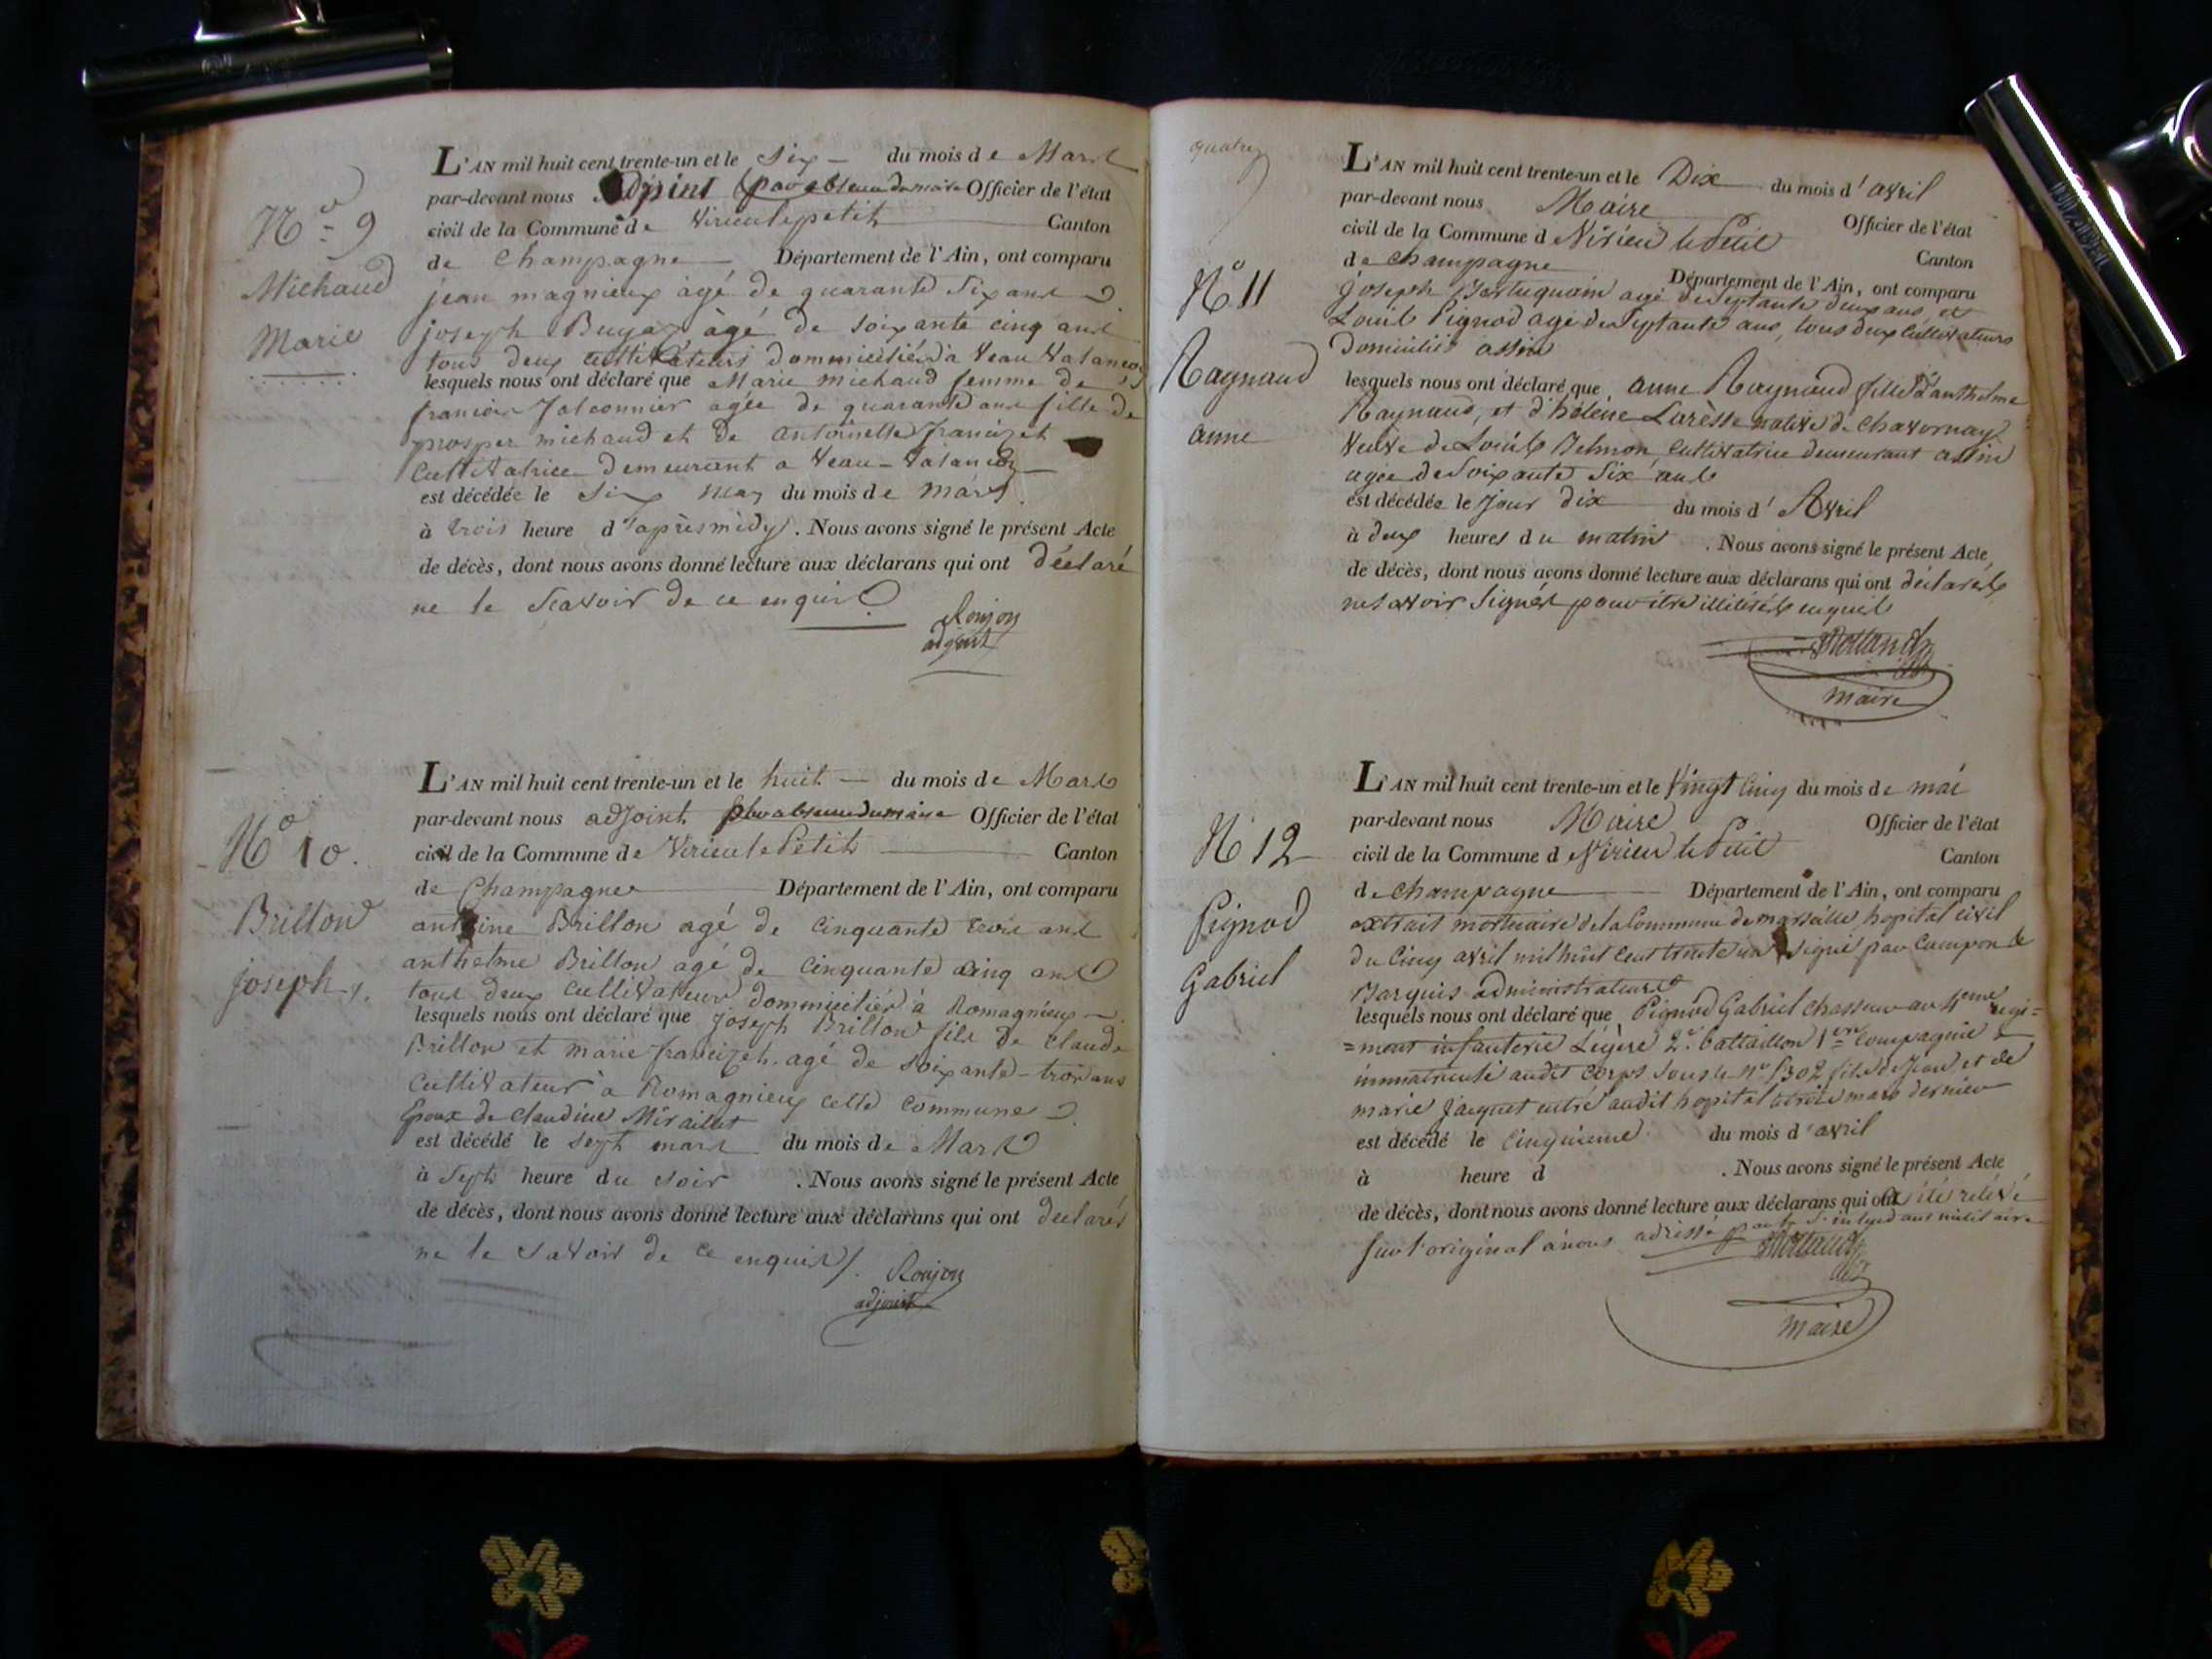 N.o 9
Michaud
Marie
L'AN mil huit cent trente-un et le Six du mois de Mars
par-devant nous adjoint par absence du maire Officier de l'état
civil de la Commune de Virieu le petit Canton
de Champagne Département de l'Ain, ont comparu
jean magnieux agé de quarante Six ans
joseph Buyaz agé de soixante cinq ans
tous deux cultivateurs dommiciliés à
lesquels nous ont déclaré que Marie michaud femme de
francois falconnier agée de quarante ans fille de
prosper michaud et de antoinette francizet
Cultivatrice demeurant a
est décédée le Six du mois de mars
à trois heure d'après midy. Nous avons signé le présent Acte
de décès, dont nous avons donné lecture aux déclarans qui ont déclaré
ne le scavoir de ce enquis
Roujon
adjoint
No 10.
Brillon
joseph
L'AN mil huit cent trente-un et le huit du mois de Mars
par-devant nous adjoint par absence du maire Officier de l'état
civil de la Commune de Virieu le Petit Canton
de Champagne Département de l'Ain, ont comparu
antoine Brillon agé de cinquante trois ans
anthelme Brillon agé de cinquante cinq ans
tous deux cultivateurs dommiciliés à Romagnieux
lesquels nous ont déclaré que Joseph Brillon fils de Claude
Brillon et marie francizet agé de soixante-trois ans
Cultivateur à Romagnieux cette commune
Epoux de Claudine Miraillet
est décédé le sept mars du mois de Mars
à Sept heure du soir. Nous avons signé le présent Acte
de décès, dont nous avons donné lecture aux déclarans qui ont declarés
ne le savoir de ce enquis
Roujon
adjoint
quatre
No 11
Raynaud
anne
L'AN mil huit cent trente-un et le Dix du mois d'avril
par-devant nous Maire Officier de l'état
civil de la Commune d Virieu le Petit Canton
de Champagne Département de l'Ain, ont comparu
joseph agé de Septante deux ans, et
Louis Pignod agé de Septante ans, tous deux Cultivateurs
Domiciliés
lesquels nous ont déclaré que anne Raynaud fille d'anthelme
Raynaud, et d'héléne native de Chavornay
Veuve de Louis Cultivatrice demeurant
agée de Soixante Six ans
est décédée le Jour dix du mois d'Avril
à deux heures du matin. Nous avons signé le présent Acte,
de décès, dont nous avons donné lecture aux déclarans qui ont déclarés
ne savoir signer pour être illitérés enquis
Rolland
maire
N 12
Pignod
Gabriel
L'AN mil huit cent trente-un et le Vingt Cinq du mois de mai
par-devant nous Maire Officier de l'état
civil de la Commune d Virieu le Petit Canton
de Champagne Département de l'Ain, ont comparu
extrait mortuaire de la Commune de marseille, hopital civil
du Cinq avril mil huit cent trente un signé par
administrateurs
lesquels nous ont déclaré que Pignod Gabriel chasseur au 4eme régi=
=ment infanterie Légère 2e battaillon 1ere Compagnie
immatriculé audit Corps sous le no 5302 fils de Jean et de
marie Jacquet entré audit hopital mars dernier
est décédé le Cinquieme du mois d'avril
à heure d. Nous avons signé le présent Acte
de décès, dont nous avons donné lecture aux déclarans qui ont été rélévé
sur l'original à nous adressé par Intendant militaire
Rolland
maire